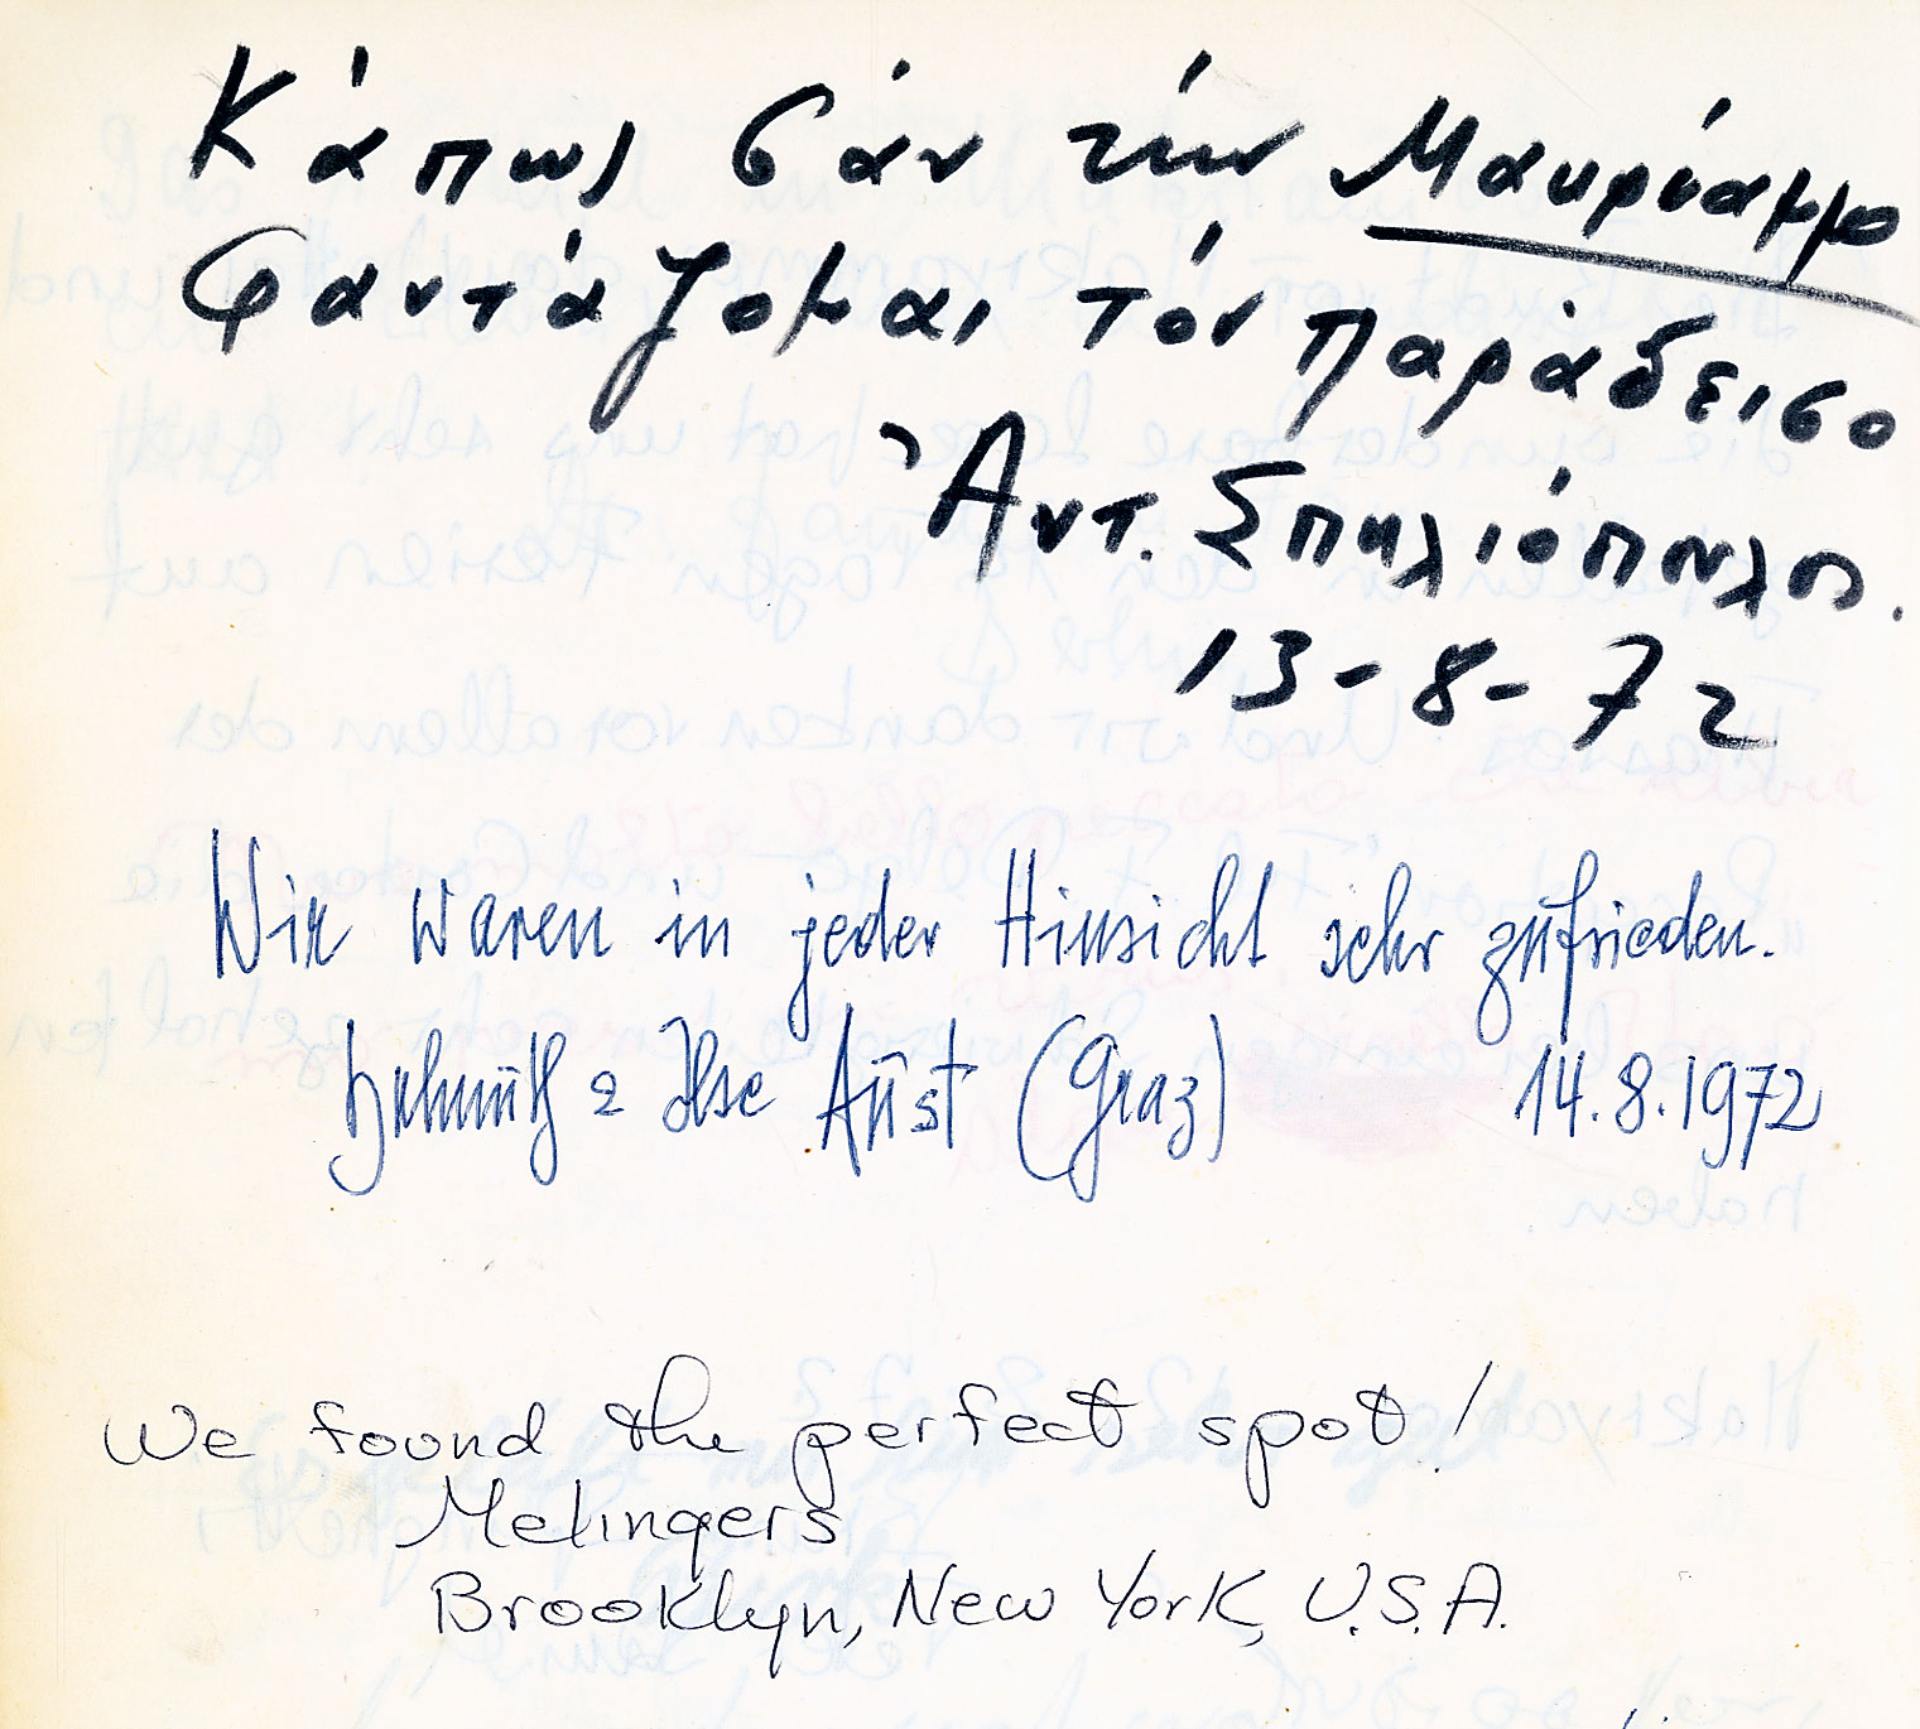 Κάπως σάν τήν Μακρύαμμο
φαντάζομαι τόν Παράδεισο
Ἀντ. Σπηλιόπουλος.
13-8-72
Wir waren in jeder Hinsicht sehr zufrieden.
Helmuth & Ilse Aust (Graz) 14.8.1972
We found the perfect spot!
Melingers
Brooklyn, New York, U.S.A.